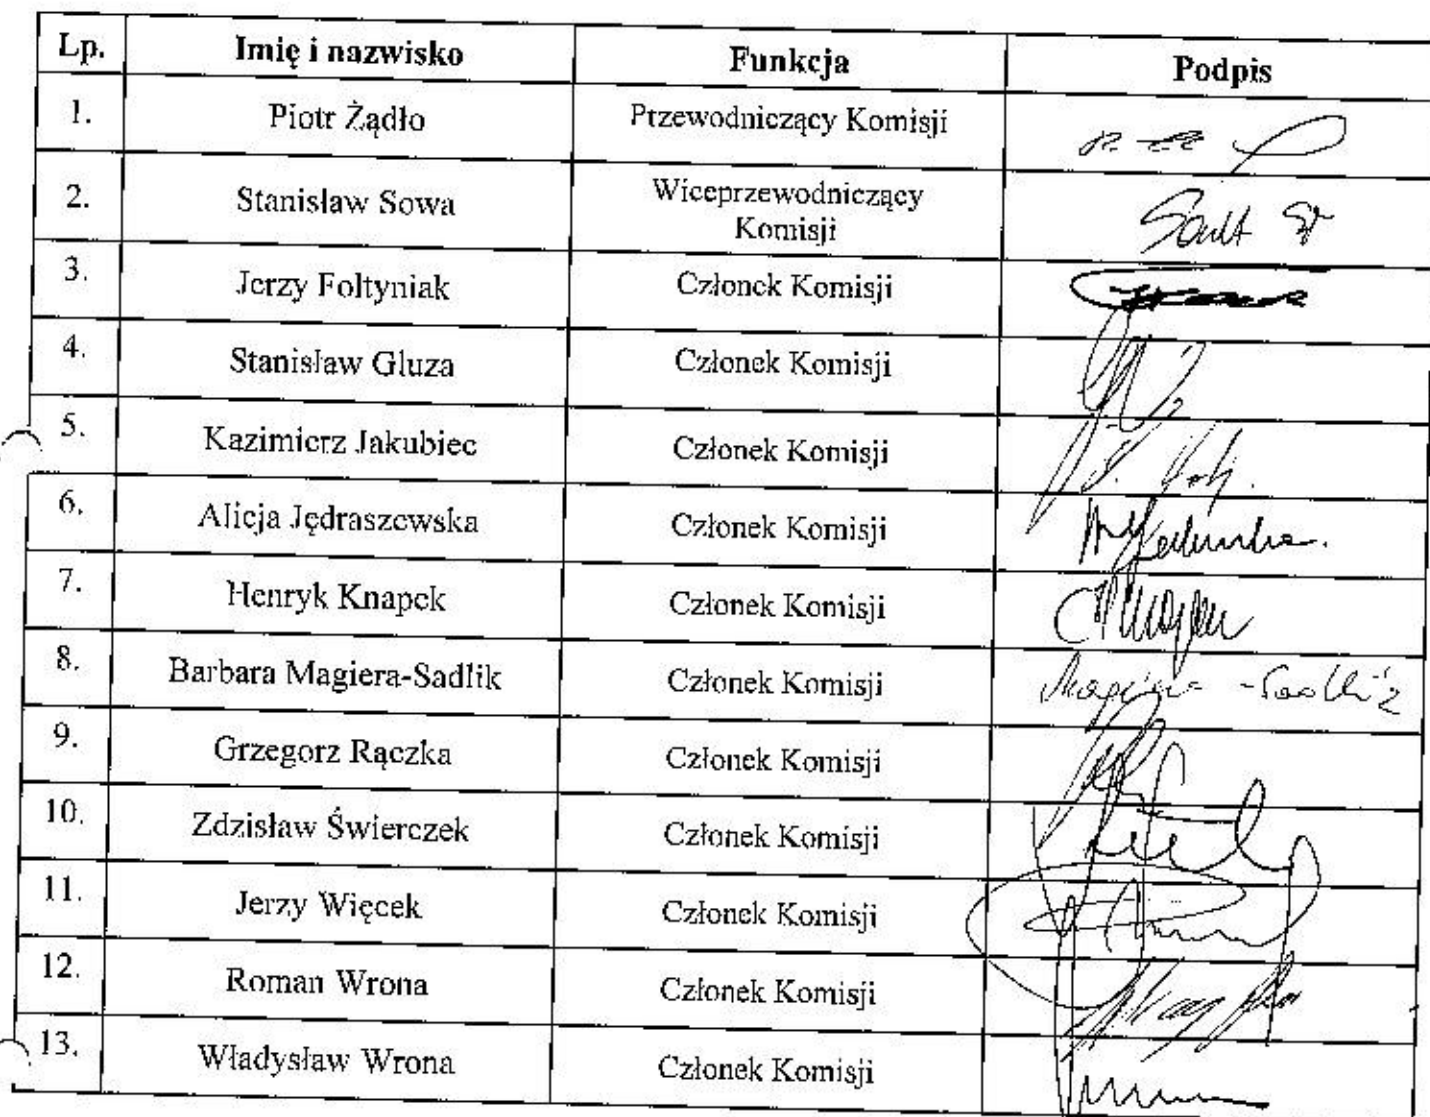 Lp. Imię i nazwisko Funkcja Podpis
1. Piotr Żądło Przewodniczący Komisji
2. Stanisław Sowa Wiceprzewodniczący
Komisji
3. Jerzy Foltyniak Członek Komisji
4. Stanisław Gluza Członek Komisji
5. Kazimierz Jakubiec Członek Komisji
6. Alicja Jędraszewska Członek Komisji
7. Henryk Knapek Członek Komisji
8. Barbara Magiera-Sadlik Członek Komisji
9. Grzegorz Rączka Członek Komisji
10. Zdzisław Świerczek Członek Komisji
11. Jerzy Więcek Członek Komisji
12. Roman Wrona Członek Komisji
13. Władysław Wrona Członek Komisji